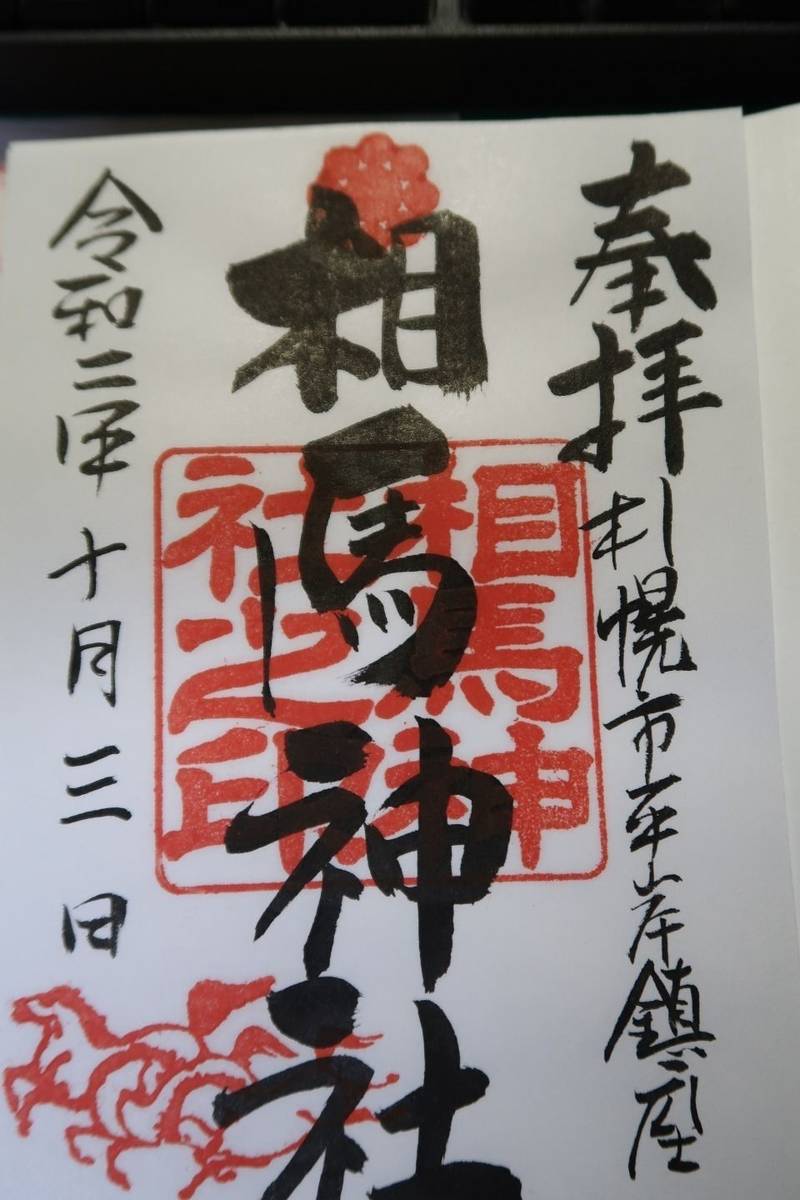 奉拝
札幌市平岸鎮座
相馬神社
相馬神
社之印
令和二年十月三日